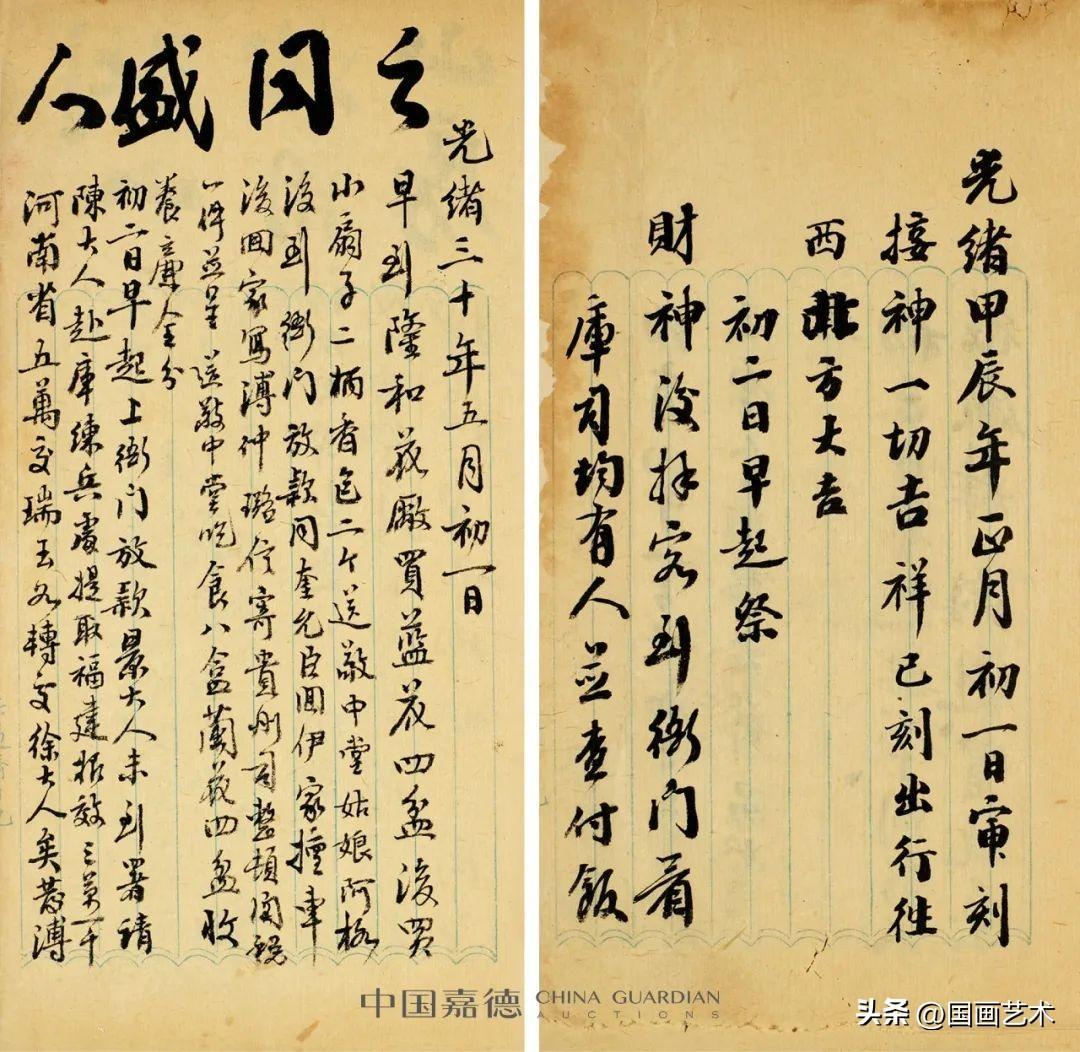 光緒甲辰年正月初一日寅刻
接神一切吉祥巳刻出行往
西北方大吉
初二日早起祭
財神後拜客到衙門看
庫司均有人並查付飯
之同盛人
光緒三十年五月初一日
早到隆和花廠買藍花四盆後買
小扇子二柄香包二个送敬中堂姑娘阿格
後到衙門放款同奎允臣回伊家 車
後回家寫溥仲璐信寄貴州司整頓関稅
一併並呈送敬中堂吃食八盒蘭花四盆收
養廉全分
初二日早起上衙門放款景大人未到署請
陳大人赴庫練兵處提取福建報效三萬一千
河南省五萬交瑞五 轉交徐大人矣 溥
中国嘉德 CHINA GUARDIAN AUCTIONS
头条 @国画艺术